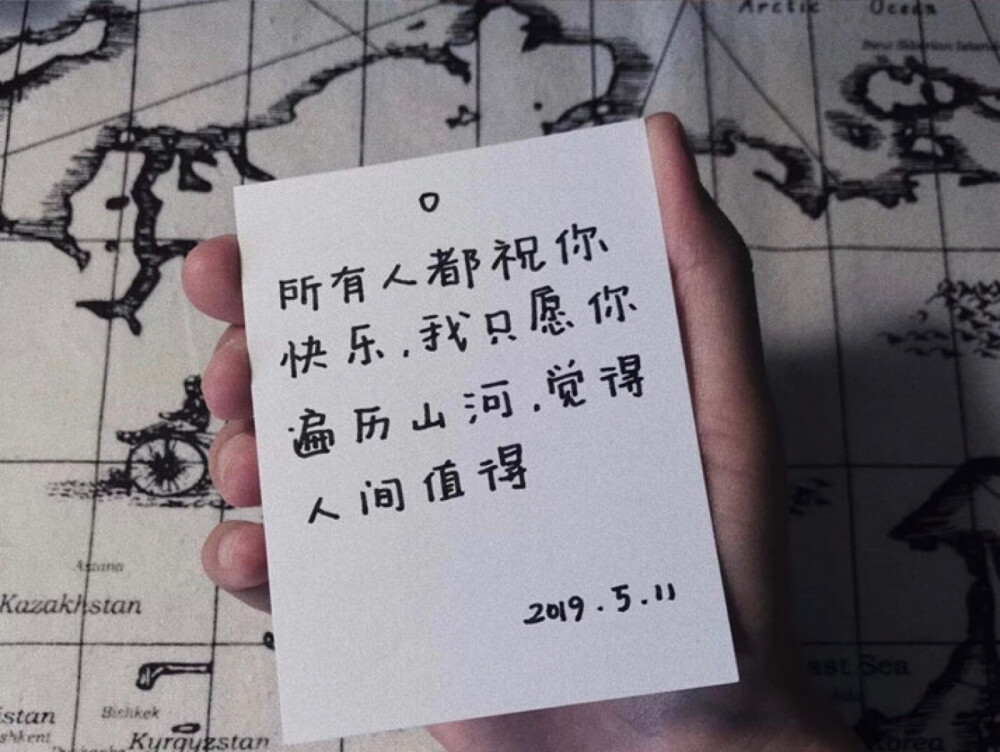 Arctic Ocean
New Siberian Island
所有人都祝你
快乐,我只愿你
遍历山河,觉得
人间值得
2019.5.11
Astana
Kazakhstan
istan
Bishkek
hkent
Kyrgyzstan
ast Sea